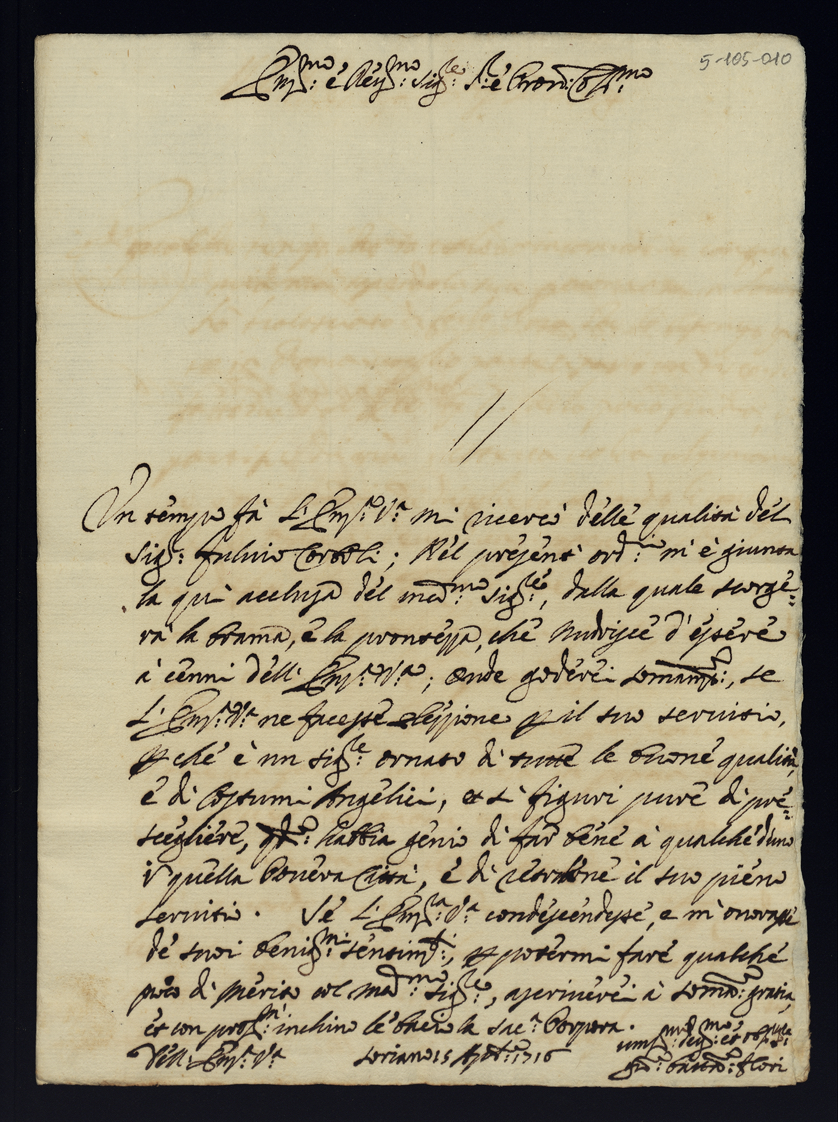 5-105-010
Em.mo e Rev.mo Sig.re S.re e Pron Col.mo
Un tempo fà L'Em.a V.a mi ricercò delle qualità del
Sig.: Fulvio ; Nel presente ord.: m'è giunta
la qui acclusa del med.mo Sig.re, dalla quale scorge=
rà la brama, e la prontezza, che nudrisce d'essere
à cenni dell'Em.a V.a; onde goderei somam.:, se
L'Em.a V.a ne facesse elezzione p il suo servitio,
p che è un Sig.re ornato di tutte le buone qualità,
e di Costumi Angelici, et si figuri pure di pre=
scegliere, habbia genio di far bene à qualched'uno
quella povera Città, e di retrarne il suo pieno
servitio. Se L'Em.a V.a condescendesse, e m'onorasse
de suoi benig.mi sentim.ti, p potermi fare qualche
poco di merito col med.mo Sig.re, ascriverei à somma gratia,
et con prof.mo inchino le bacio la Sac.a Porpora.
Dell'Em.a V.a Soriano 15 1716
um.mo dev.mo et obl.
Flori